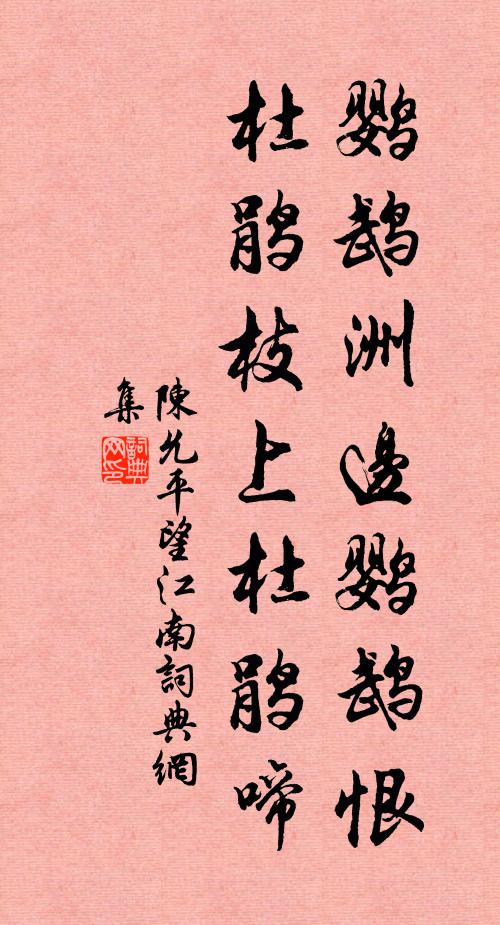 鹦鹉洲邊鹦鹉恨
杜鹃枝上杜鹃啼
陳允平望江南詞典網
集
詞典網印